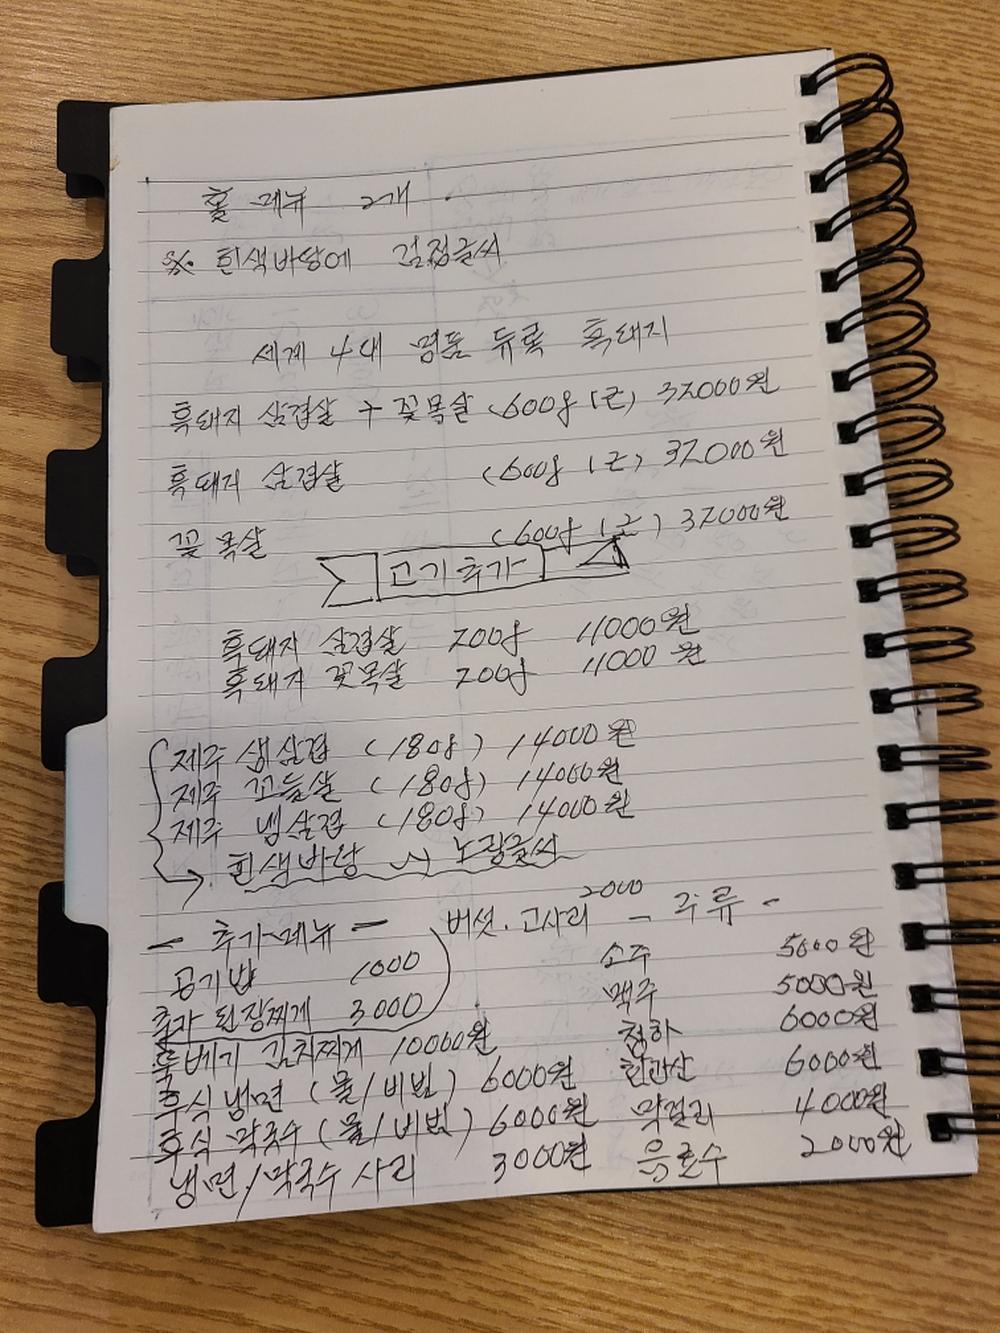 홀 메뉴 2개.
※. 흰색바탕에 검정글씨
세계 4대 명품 듀록 흑돼지
흑돼지 삼겹살 + 꽃목살 (600g 1근) 37,000원
흑돼지 삼겹살 (600g 1근) 37,000원
꽃목살 (600g 1근) 37,000원
고기추가
흑돼지 삼겹살 200g 11000원
흑돼지 꽃목살 200g 11000원
제주 생삼겹 (180g) 14000원
제주 꼬들살 (180g) 14000원
제주 냉삼겹 (180g) 14000원
흰색바탕 노랑글씨
- 추가메뉴 - 버섯.고사리 2000 - 주류 -
공기밥 1000 소주 5000원
추가 된장찌개 3000 맥주 5000원
뚝베기 김치찌개 10000원 청하 6000원
후식 냉면 (물/비빔) 6000원 한라산 6000원
후식 막국수 (물/비빔) 6000원 막걸리 4000원
냉면/막국수 사리 3000원 음료수 2000원